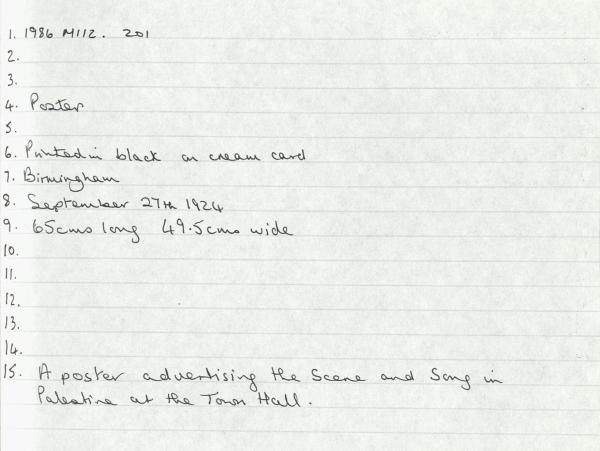 1. 1986 M112. 201
2.
3.
4. Poster
5.
6. Printed in black on cream card
7. Birmingham
8. September 27th 1924
9. 65cms long 49.5cms wide
10.
11.
12.
13.
14.
15. A poster advertising the Scene and Song in
Palestine at the Town Hall.